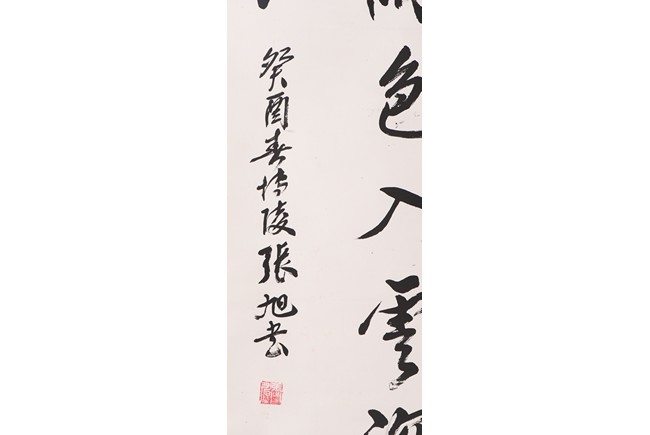 色入雲海
癸酉春博陵張旭書